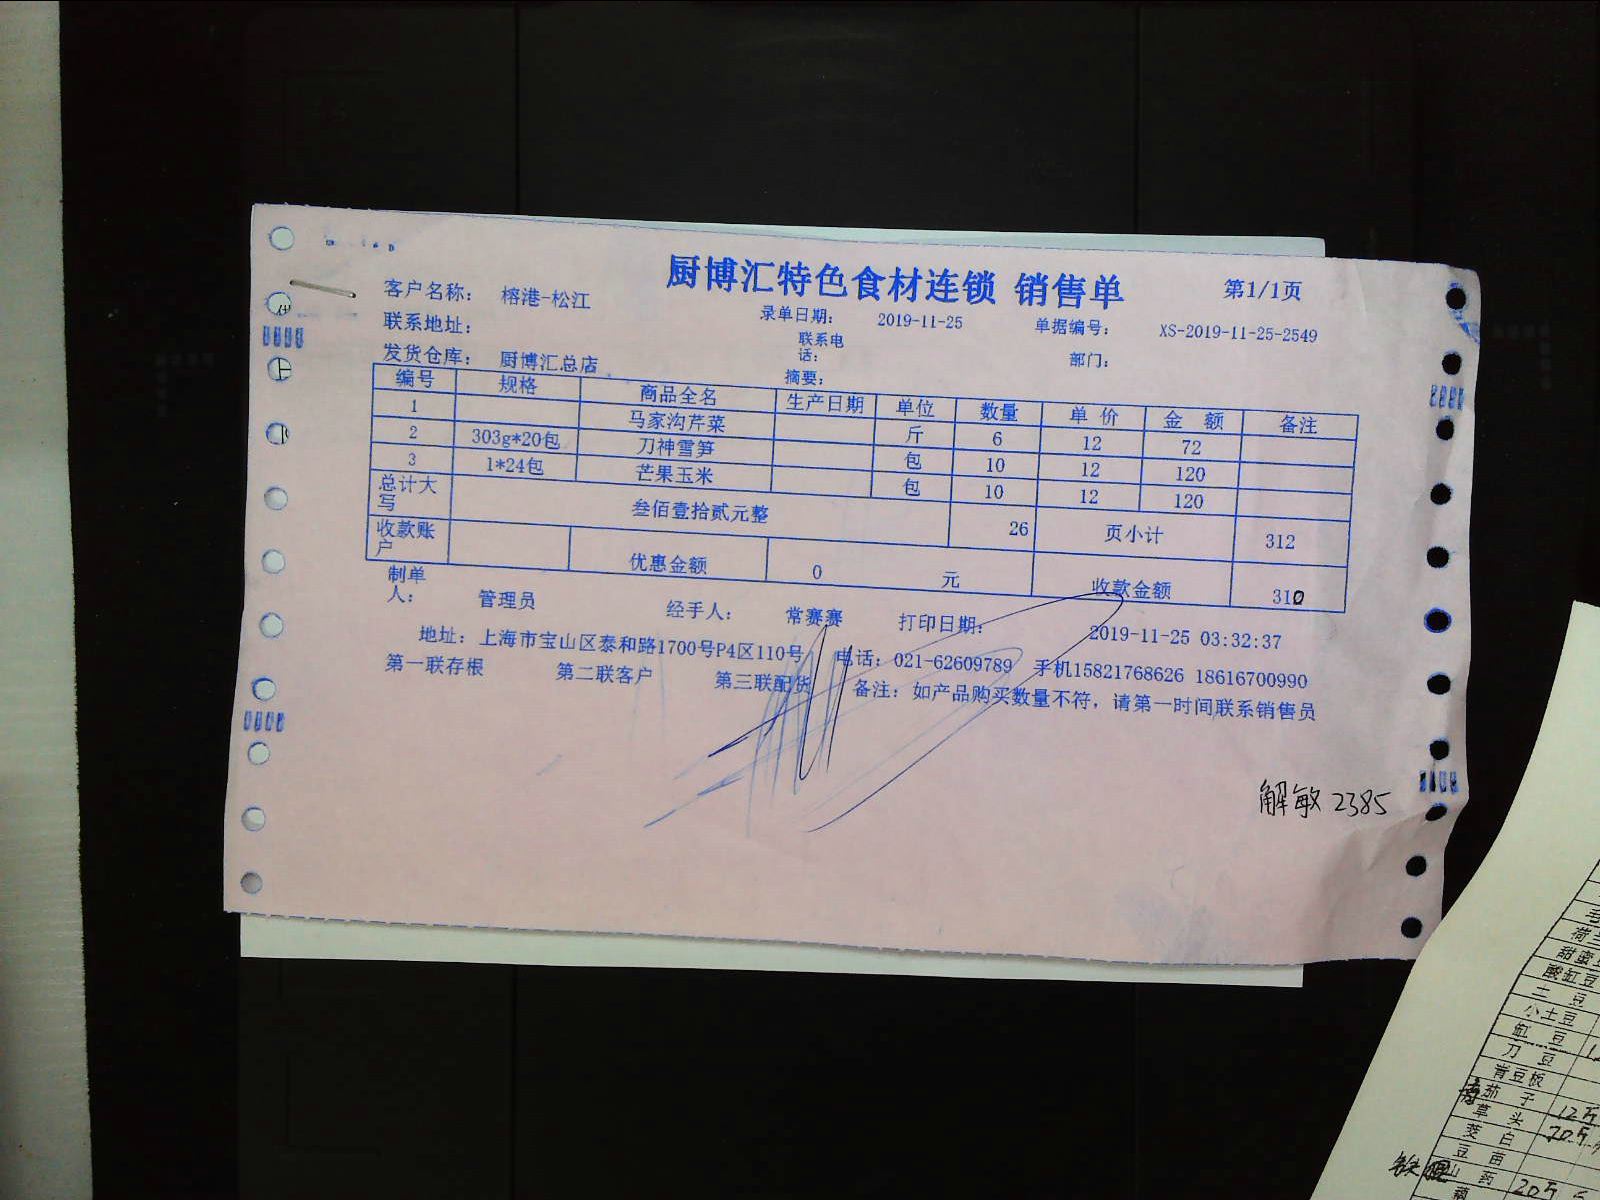 厨博汇特色食材连锁 销售单
第1/1页
客户名称： 榕港-松江
录单日期： 2019-11-25 单据编号： XS-2019-11-25-2549
联系地址： 联系电话： 部门：
发货仓库： 厨博汇总店 摘要：
编号 规格 商品全名 生产日期 单位 数量 单 价 金 额 备注
1 马家沟芹菜 斤 6 12 72
2 303g*20包 刀神雪笋 包 10 12 120
3 1*24包 芒果玉米 包 10 12 120
总计大写 叁佰壹拾贰元整 26 页小计 312
收款账户 优惠金额 0 元 收款金额 310
制单人： 管理员 经手人： 常赛赛 打印日期： 2019-11-25 03:32:37
地址：上海市宝山区泰和路1700号P4区110号 电话：021-62609789 手机15821768626 18616700990
第一联存根 第二联客户 第三联配货 备注：如产品购买数量不符，请第一时间联系销售员
解敏 2385
酸缸豆
土 豆
小土豆
缸 豆
刀 豆
青豆板
茄 子
草 头 12斤
茭 白 20斤
豆 苗
山 药